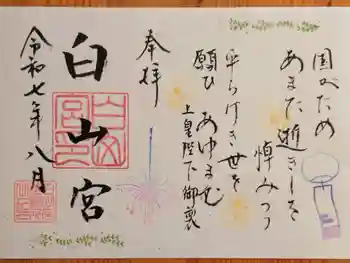 国がため
あまた逝きしを
悼みつつ
平らけき世を
願ひ あゆまむ
上皇陛下御製
奉拝
白山宮
令和七年八月